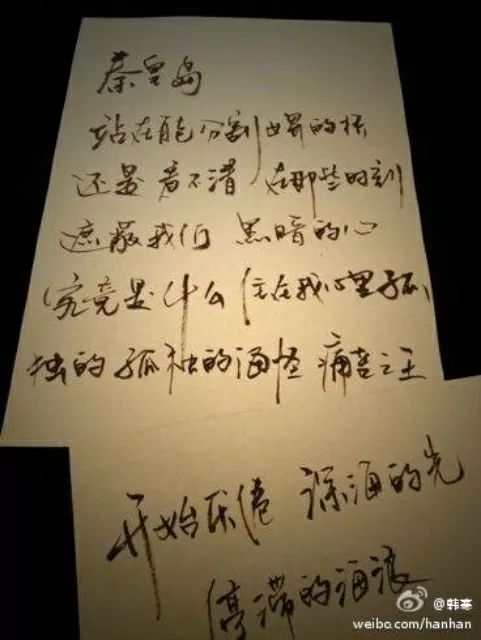 秦皇岛
站在能分割世界的桥
还是看不清 在那些时刻
遮蔽我们 黑暗的心
究竟是什么 住在我心里孤
独的 孤独的海怪 痛苦之王
开始厌倦 深海的光
停滞的海浪
@韩寒
weibo.com/hanhan